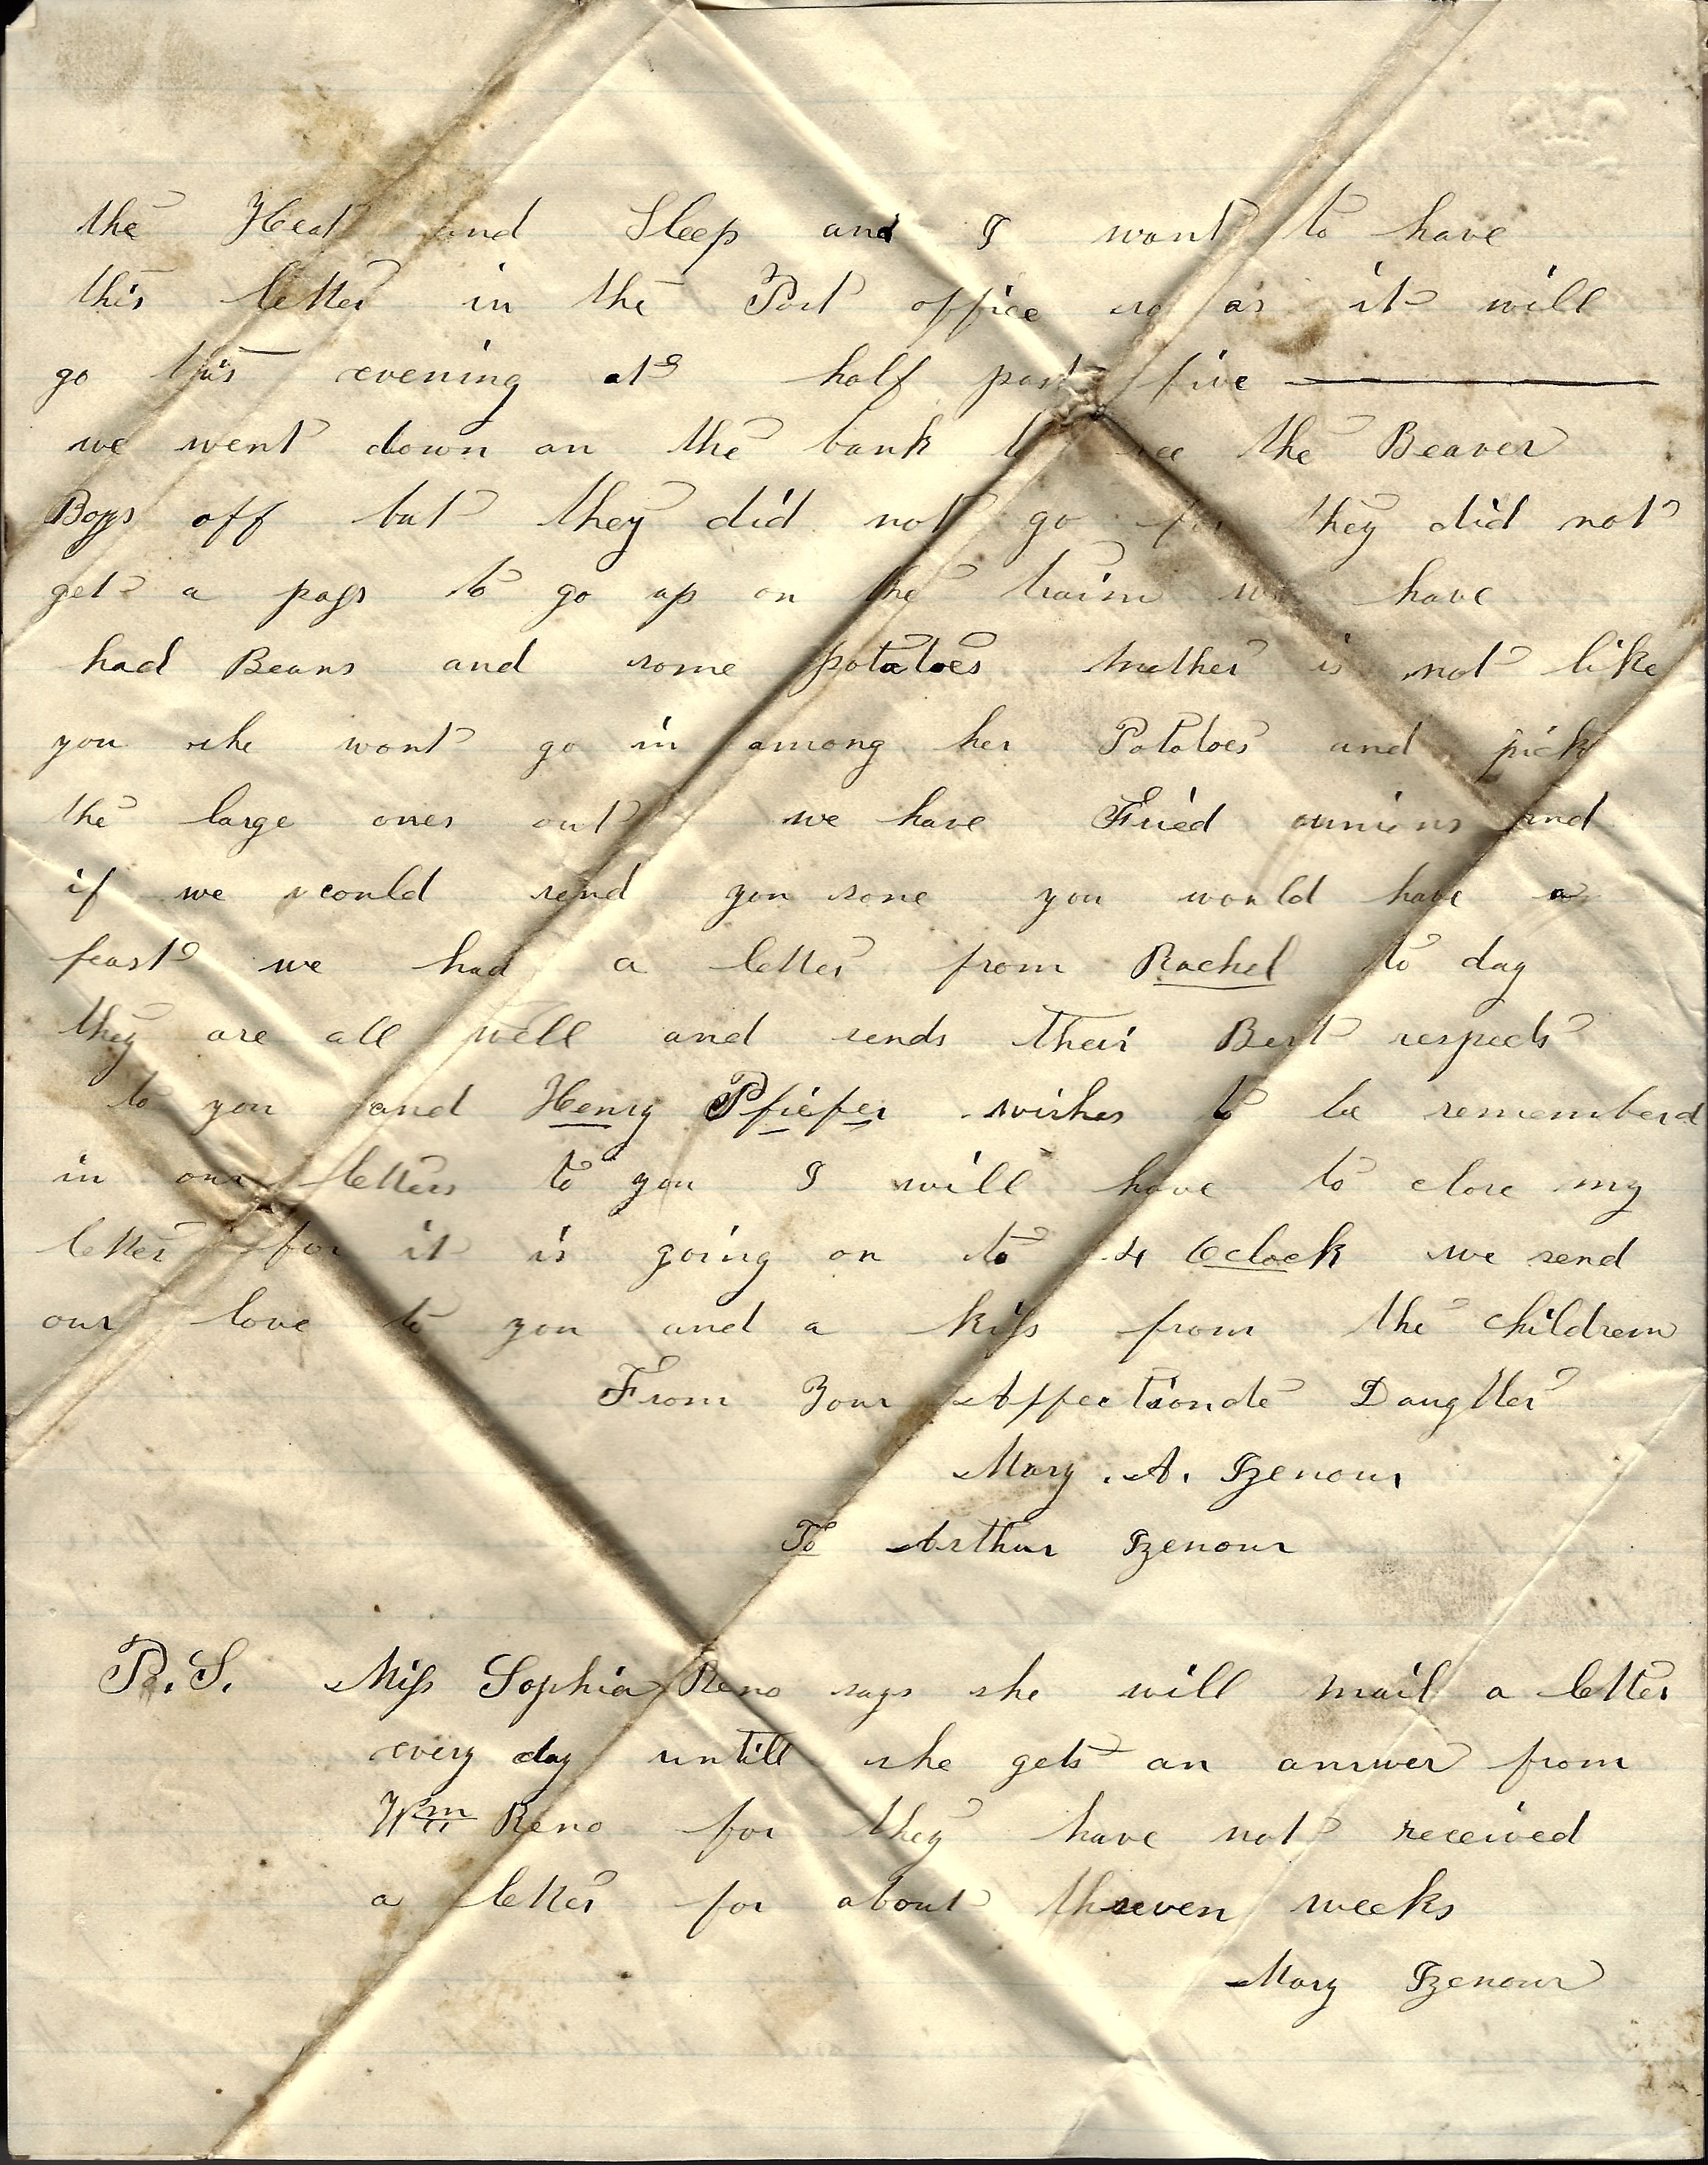 the Heat and Sleep and I want to have
this letter in the Post office so as it will
go this evening at half past five
we went down on the bank to see the Beaver
Boys off but they did not go for they did not
get a pass to go up on the train we have
had Beans and some potatoes mother is not like
you she wont go in among her Potatoes and pick
the large ones out we have Fried ounions and
if we could send you some you would have a
feast we had a letter from Rachel to day
they are all well and sends their Best respects
to you and Henry Pfiefer wishes to be rememberd
in our letters to you I will have to close my
letter for it is going on to 4 Oclock we send
our love to you and a kiss from the children
From Your Affectionate Daughter
Mary . A. Izenour
To Arthur Izenour
P.S. Miss Sophia Reno says she will mail a letter
every day untill she gets an answer from
Wm Reno for they have not received
a letter for about seven weeks
Mary Izenour